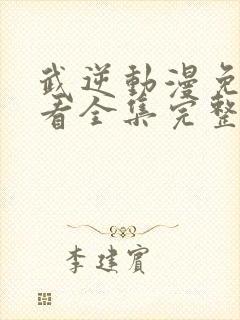 武逆動漫免
看全集完整
李建賓